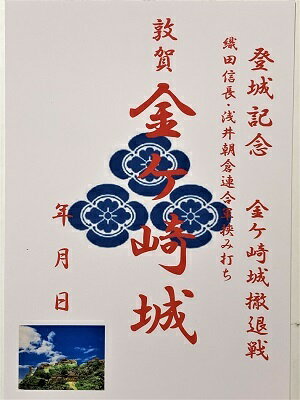 登城記念 金ケ崎城撤退戦
織田信長・浅井朝倉連合軍挟み打ち
敦賀
金ケ崎城
年月日